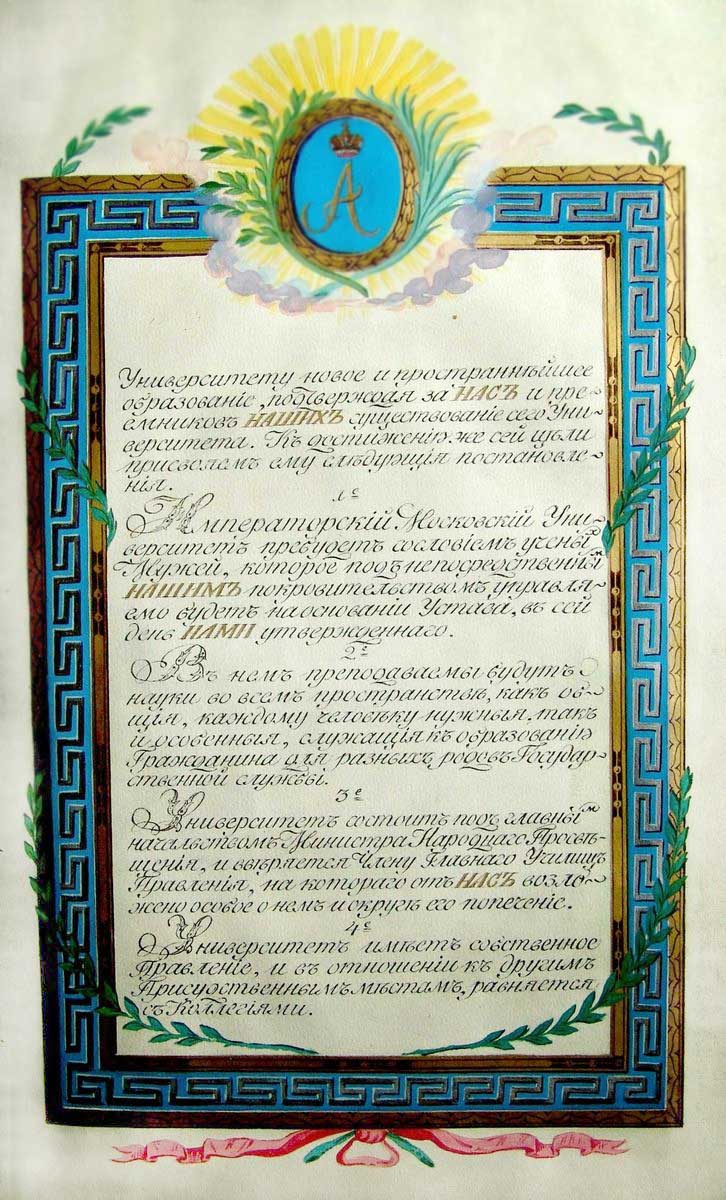 А
Университету новое и пространнѣйшее
образованіе, подтверждая за НАСЪ и пре-
емниковъ НАШИХЪ существованіе сего Уни-
верситета. Къ достиженію же сей цѣли
присволемъ ему слѣдующія постановле-
нія.
1е
Императорскій Московскій Уни-
верситетъ пребудетъ сословіемъ ученыхъ
Мужей, которое подъ непосредственнымъ
НАШИМЪ покровительствомъ управля-
емо будетъ на основаніи Устава, въ сей
день НАМИ утвержденнаго.
2е
Въ немъ преподаваемы будутъ
науки во всемъ пространствѣ, какъ об-
щія, каждому человѣку нужныя, такъ
и особенныя, служащія къ образованію
Гражданина для разныхъ родовъ Государ-
ственной службы.
3е
Университетъ состоитъ подъ главнымъ
начальствомъ Министра Народнаго Просвѣ-
щенія, и ввѣряется Члену Главнаго Училищъ
Правленія, на котораго отъ НАСЪ возло-
жено особое о немъ и округѣ его попеченіе.
4е
Университетъ имѣетъ собственное
Правленіе, и въ отношеніи къ другимъ
Присудственнымъ мѣстамъ, равняется
съ Коллегіями.